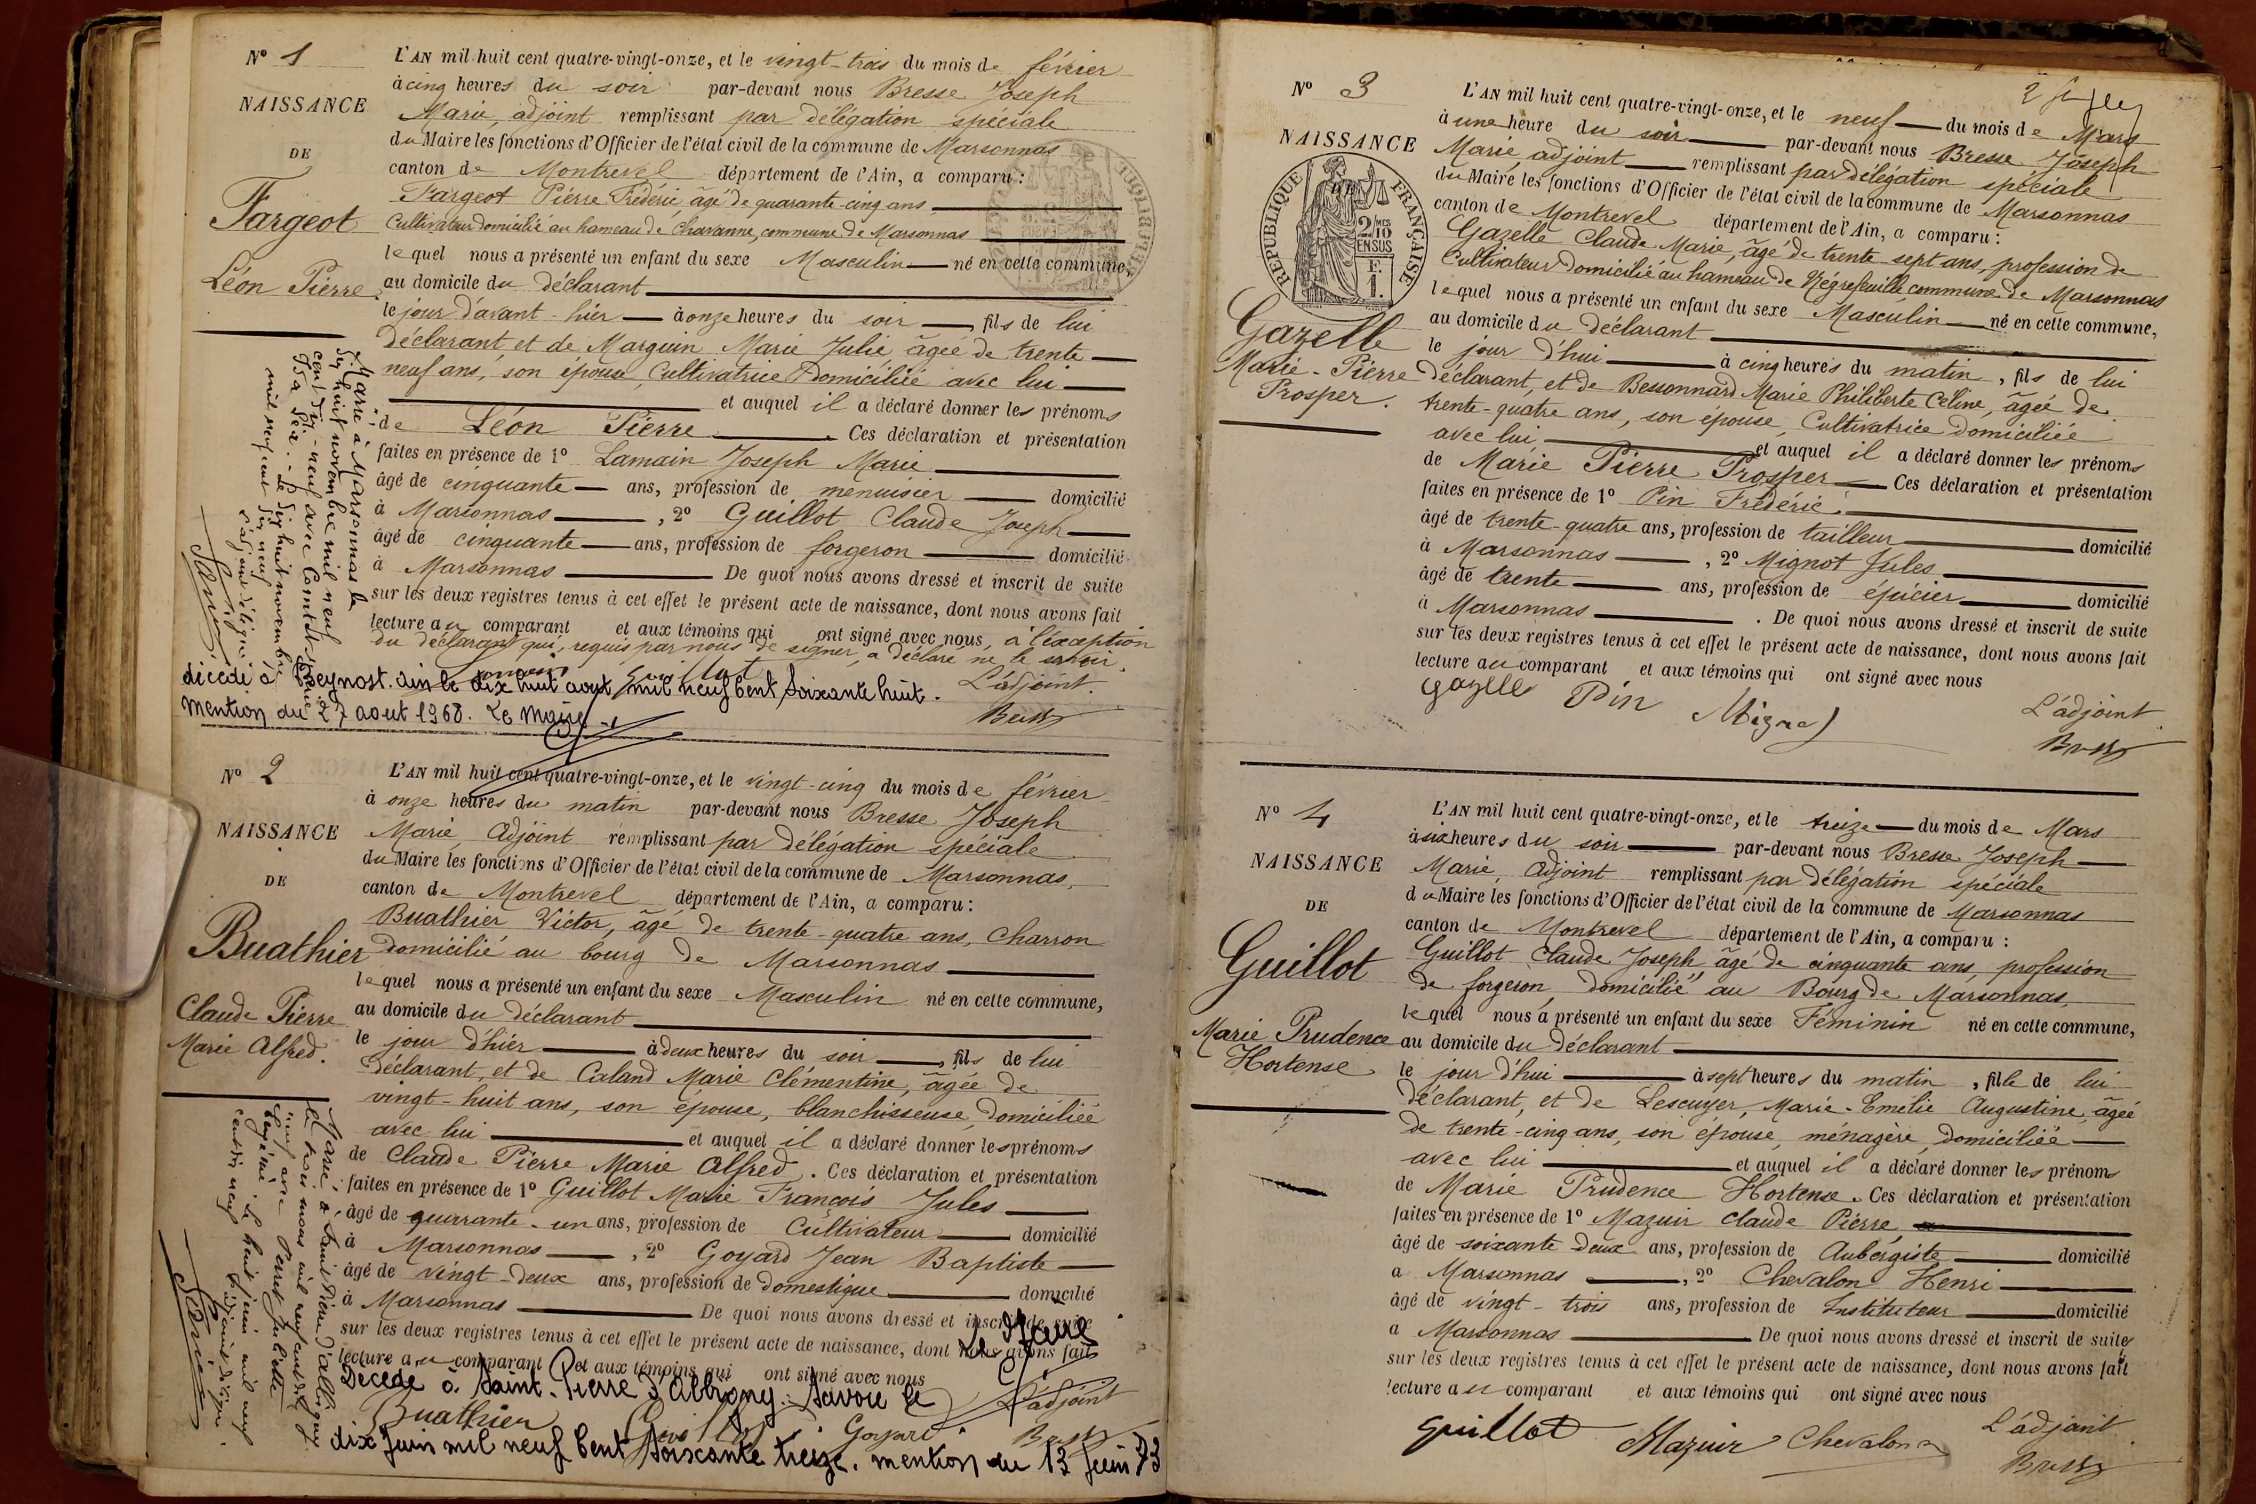 Nº 1
NAISSANCE
DE
Fargeot
Léon Pierre
L'AN mil huit cent quatre-vingt-onze, et le vingt-trois du mois de février
à cinq heures du soir par-devant nous Bresse Joseph
Marie, adjoint remplissant par délégation spéciale
du Maire les fonctions d'Officier de l'état civil de la commune de Marsonnas
canton de Montrevel département de l'Ain, a comparu :
Fargeot Pierre Frédéric, âgé de quarante-cinq ans
Cultivateur domicilié au hameau de Chavanne, commune de Marsonnas
lequel nous a présenté un enfant du sexe Masculin né en cette commune,
au domicile du déclarant
le jour d'avant-hier à onze heures du soir, fils de lui
déclarant et de Marguin Marie Julie, âgée de trente
neuf ans, son épouse, Cultivatrice Domiciliée avec lui
et auquel il a déclaré donner les prénoms
de Léon Pierre. Ces déclaration et présentation
faites en présence de 1º Lamain Joseph Marie
âgé de cinquante ans, profession de menuisier domicilié
à Marsonnas, 2º Guillot Claude Joseph
âgé de cinquante ans, profession de forgeron domicilié
à Marsonnas De quoi nous avons dressé et inscrit de suite
sur les deux registres tenus à cet effet le présent acte de naissance, dont nous avons fait
lecture au comparant et aux témoins qui ont signé avec nous, à l'exception
du déclarant qui, requis par nous de signer, a déclaré ne le savoir.
Lamain Guillot L'adjoint.
Bresse
Marié à Marsonnas le
dix huit novembre mil neuf
cent dix-neuf avec Comtet
Le dix huit novembre
mil neuf cent dix neuf
L'adjoint délégué
décédé à Beynost. ain le dix huit août mil neuf Cent Soixante huit.
Mention du 27 août 1968. Le Maire
Nº 2
NAISSANCE
DE
Buathier
Claude Pierre
Marie Alfred.
L'AN mil huit cent quatre-vingt-onze, et le vingt-cinq du mois de février
à onze heures du matin par-devant nous Bresse Joseph
Marie, Adjoint remplissant par délégation spéciale
du Maire les fonctions d'Officier de l'état civil de la commune de Marsonnas,
canton de Montrevel département de l'Ain, a comparu :
Buathier Victor, âgé de trente-quatre ans, Charron
domicilié au bourg de Marsonnas
lequel nous a présenté un enfant du sexe Masculin né en cette commune,
au domicile du déclarant
le jour d'hier à deux heures du soir, fils de lui
déclarant, et de Caland Marie Clémentine, âgée de
vingt-huit ans, son épouse, blanchisseuse, domiciliée
avec lui et auquel il a déclaré donner les prénoms
de Claude Pierre Marie Alfred. Ces déclaration et présentation
faites en présence de 1º Guillot Marie François Jules
âgé de quarante-un ans, profession de Cultivateur domicilié
à Marsonnas, 2º Goyard Jean Baptiste
âgé de vingt-deux ans, profession de domestique domicilié
à Marsonnas De quoi nous avons dressé et inscrit de suite
sur les deux registres tenus à cet effet le présent acte de naissance, dont nous avons fait
lecture au comparant et aux témoins qui ont signé avec nous
Buathier Guillot Goyard L'adjoint
Bresse
Marié à Saint Pierre d'albigny
le trois mars mil neuf cent dix
neuf avec Perret Juliette
Eugénie. Le huit juin mil neuf
cent dix neuf L'adjoint délégué.
Le Maire
Décédé à Saint-Pierre d'Albigny. Savoie le
dix Juin mil neuf Cent Soixante treize. mention du 13 Juin 73
2 f
Nº 3
NAISSANCE
RÉPUBLIQUE FRANÇAISE
2/10 EN SUS
Gazelle
Marie-Pierre
Prosper.
L'AN mil huit cent quatre-vingt-onze, et le neuf du mois de Mars
à une heure du soir par-devant nous Bresse Joseph
Marie adjoint remplissant par délégation spéciale
du Maire les fonctions d'Officier de l'état civil de la commune de Marsonnas
canton de Montrevel département de l'Ain, a comparu :
Gazelle Claude Marie, âgé de trente-sept ans, profession de
Cultivateur domicilié au hameau de Négrefeuille commune de Marsonnas
lequel nous a présenté un enfant du sexe Masculin né en cette commune,
au domicile du déclarant
le jour d'hui à cinq heures du matin, fils de lui
déclarant, et de Bessonnard Marie Philiberte Céline, âgée de
trente-quatre ans, son épouse, Cultivatrice domiciliée
avec lui et auquel il a déclaré donner les prénoms
de Marie Pierre Prosper Ces déclaration et présentation
faites en présence de 1º Pin Frédéric
âgé de trente-quatre ans, profession de tailleur domicilié
à Marsonnas, 2º Mignot Jules
âgé de trente ans, profession de épicier domicilié
à Marsonnas. De quoi nous avons dressé et inscrit de suite
sur les deux registres tenus à cet effet le présent acte de naissance, dont nous avons fait
lecture au comparant et aux témoins qui ont signé avec nous
Gazelle Pin Mignot L'adjoint
Bresse
Nº 4
NAISSANCE
DE
Guillot
Marie Prudence
Hortense
L'AN mil huit cent quatre-vingt-onze, et le treize du mois de Mars
à six heures du soir par-devant nous Bresse Joseph
Marie, Adjoint remplissant par délégation spéciale
du Maire les fonctions d'Officier de l'état civil de la commune de Marsonnas
canton de Montrevel département de l'Ain, a comparu :
Guillot Claude Joseph âgé de cinquante ans, profession
de forgeron domicilié au Bourg de Marsonnas
lequel nous a présenté un enfant du sexe Féminin né en cette commune,
au domicile du déclarant
le jour d'hui à sept heures du matin, fille de lui
déclarant, et de Lescuyer, Marie-Emélie Augustine, âgée
de trente-cinq ans, son épouse, ménagère, domiciliée
avec lui et auquel il a déclaré donner les prénoms
de Marie Prudence Hortense. Ces déclaration et présentation
faites en présence de 1º Mazuir Claude Pierre
âgé de soixante deux ans, profession de Aubergiste domicilié
a Marsonnas, 2º Chevalon Henri
âgé de vingt-trois ans, profession de Instituteur domicilié
a Marsonnas De quoi nous avons dressé et inscrit de suite
sur les deux registres tenus à cet effet le présent acte de naissance, dont nous avons fait
lecture au comparant et aux témoins qui ont signé avec nous
Guillot Mazuir Chevalon L'adjoint
Bresse